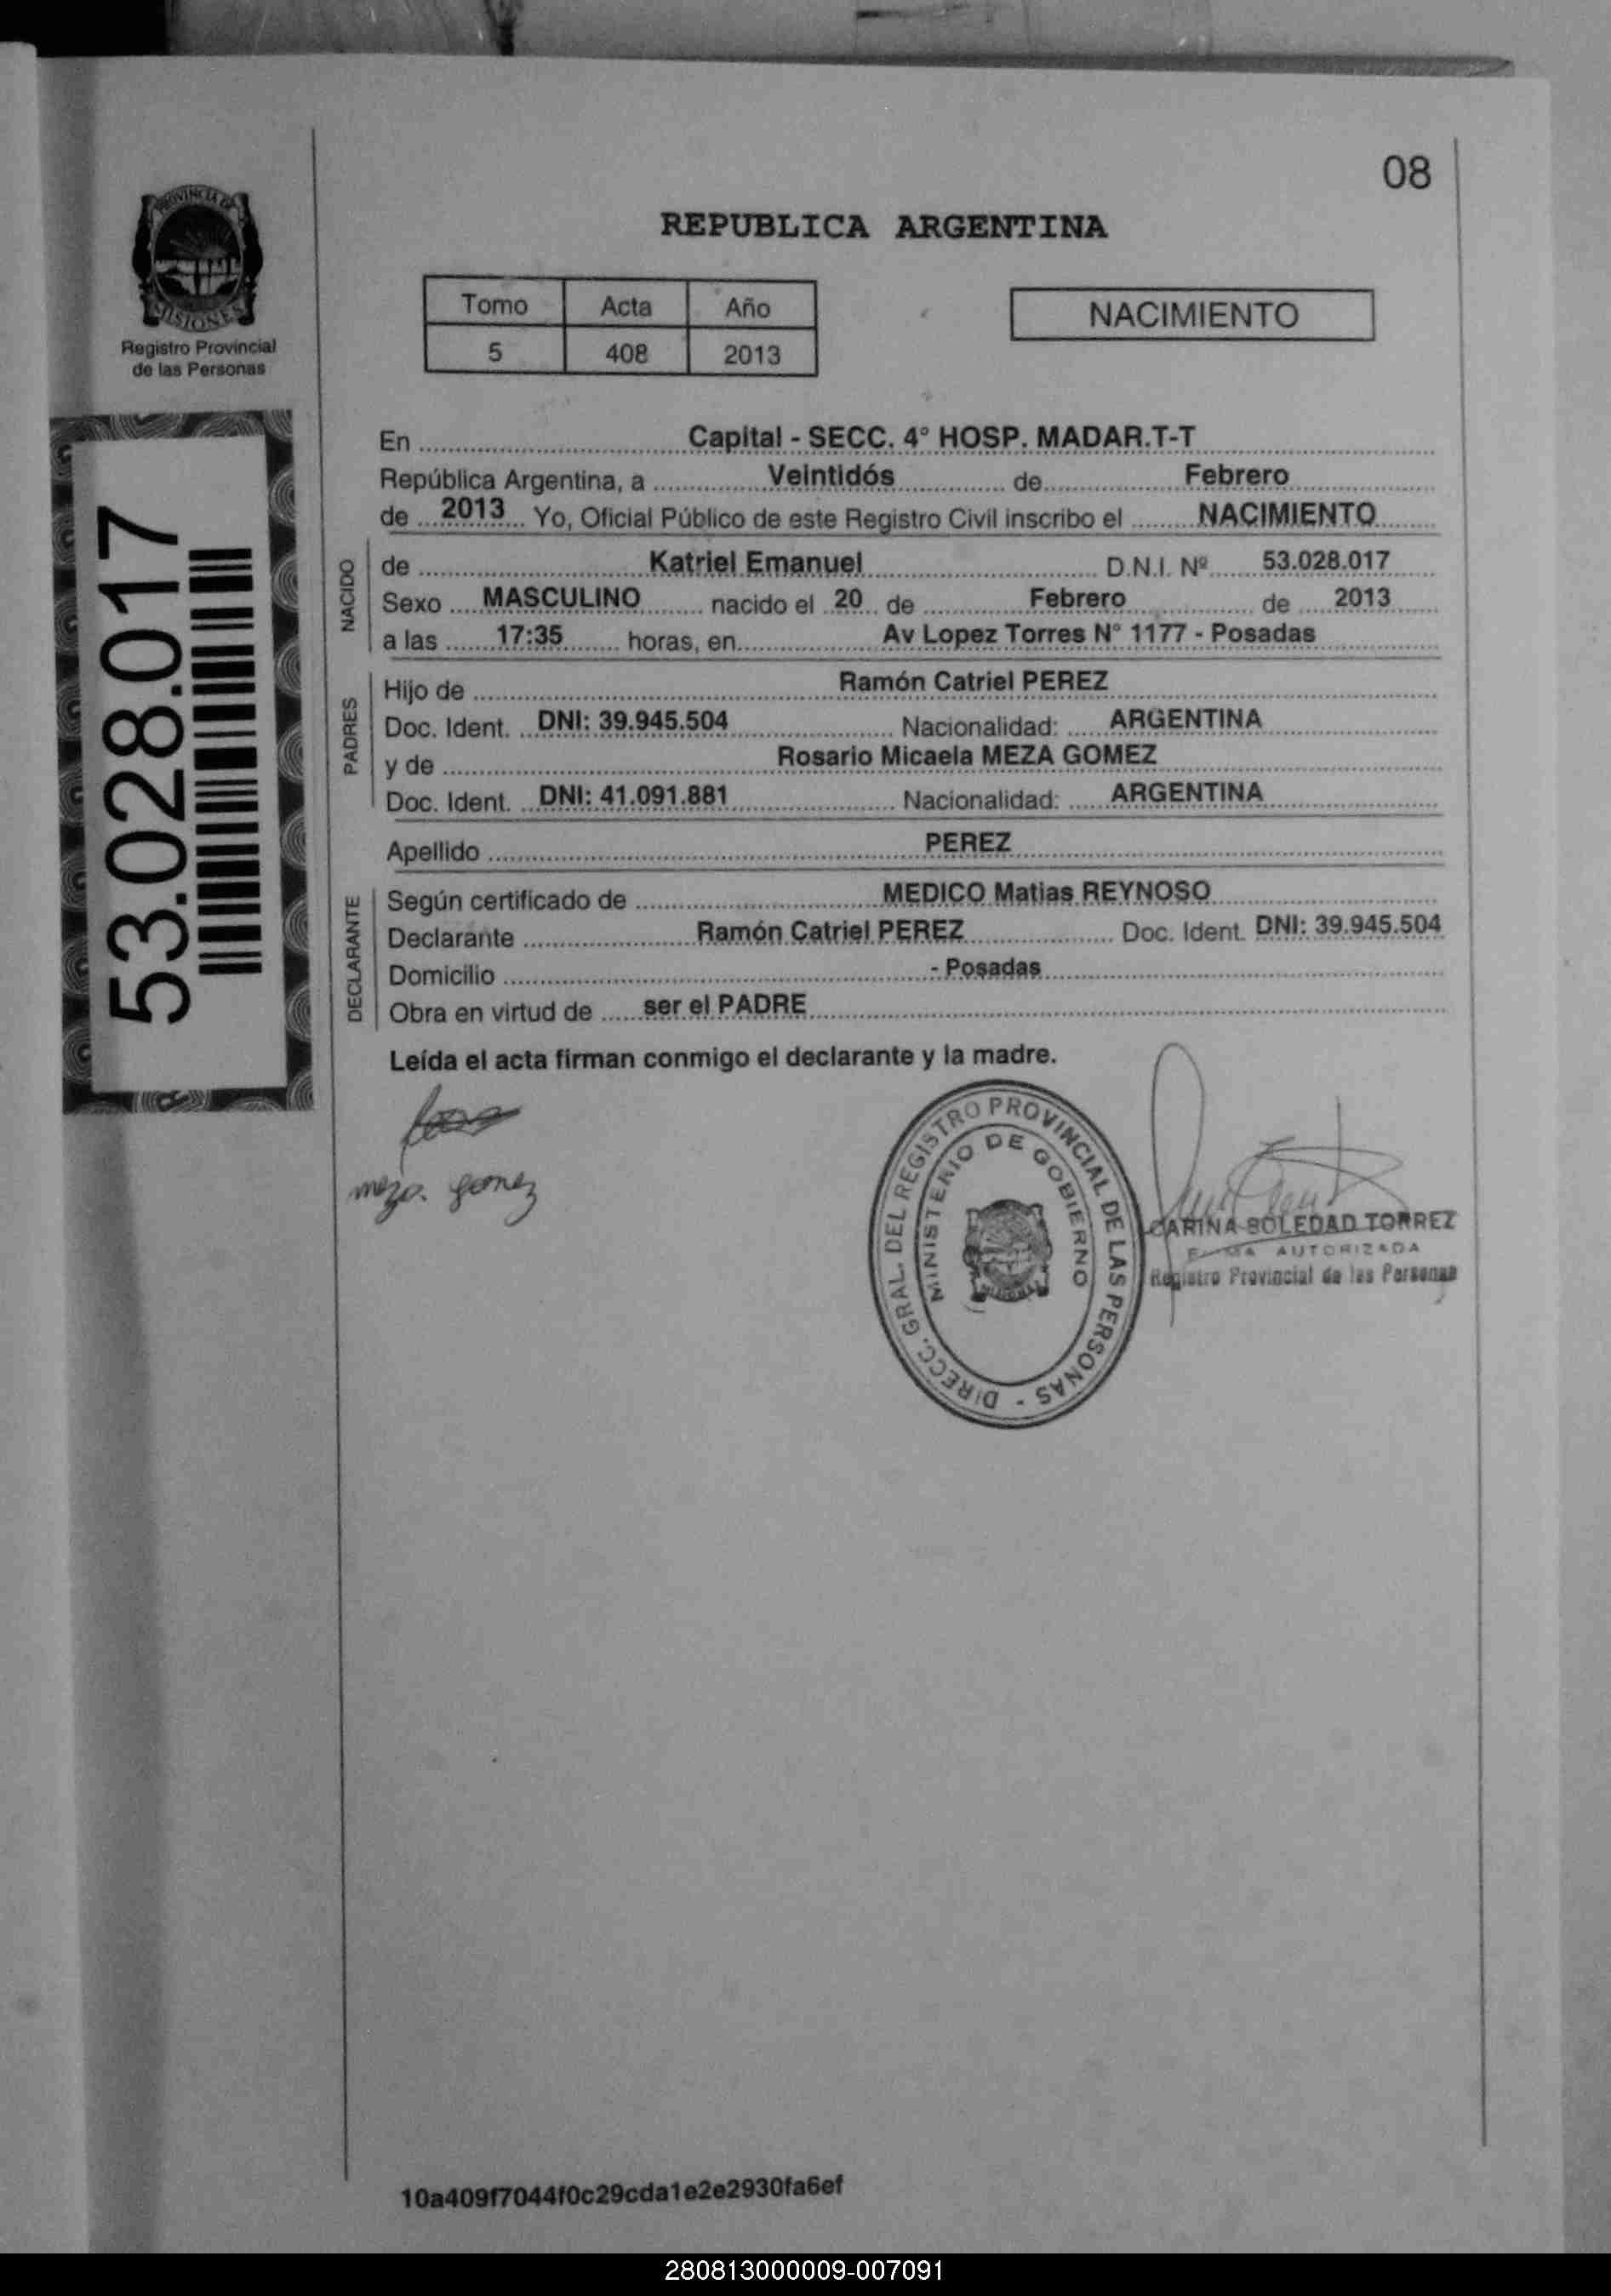 08
PROVINCIA DE
MISIONES
Registro Provincial
de las Personas
REPUBLICA ARGENTINA
Tomo Acta Año
5 408 2013
NACIMIENTO
53.028.017
En Capital - SECC. 4° HOSP. MADAR.T-T
República Argentina, a Veintidós de Febrero
de 2013 Yo, Oficial Público de este Registro Civil inscribo el NACIMIENTO
NACIDO
de Katriel Emanuel D.N.I. Nº 53.028.017
Sexo MASCULINO nacido el 20 de Febrero de 2013
a las 17:35 horas, en Av Lopez Torres N° 1177 - Posadas
PADRES
Hijo de Ramón Catriel PEREZ
Doc. Ident. DNI: 39.945.504 Nacionalidad: ARGENTINA
y de Rosario Micaela MEZA GOMEZ
Doc. Ident. DNI: 41.091.881 Nacionalidad: ARGENTINA
Apellido PEREZ
DECLARANTE
Según certificado de MEDICO Matias REYNOSO
Declarante Ramón Catriel PEREZ Doc. Ident. DNI: 39.945.504
Domicilio - Posadas
Obra en virtud de ser el PADRE
Leída el acta firman conmigo el declarante y la madre.
meza gomez
DIRECC. GRAL. DEL REGISTRO PROVINCIAL DE LAS PERSONAS -
MINISTERIO DE GOBIERNO
CARINA SOLEDAD TORREZ
AUTORIZADA
Registro Provincial de las Personas
10a409f7044f0c29cda1e2e2930fa6ef
280813000009-007091